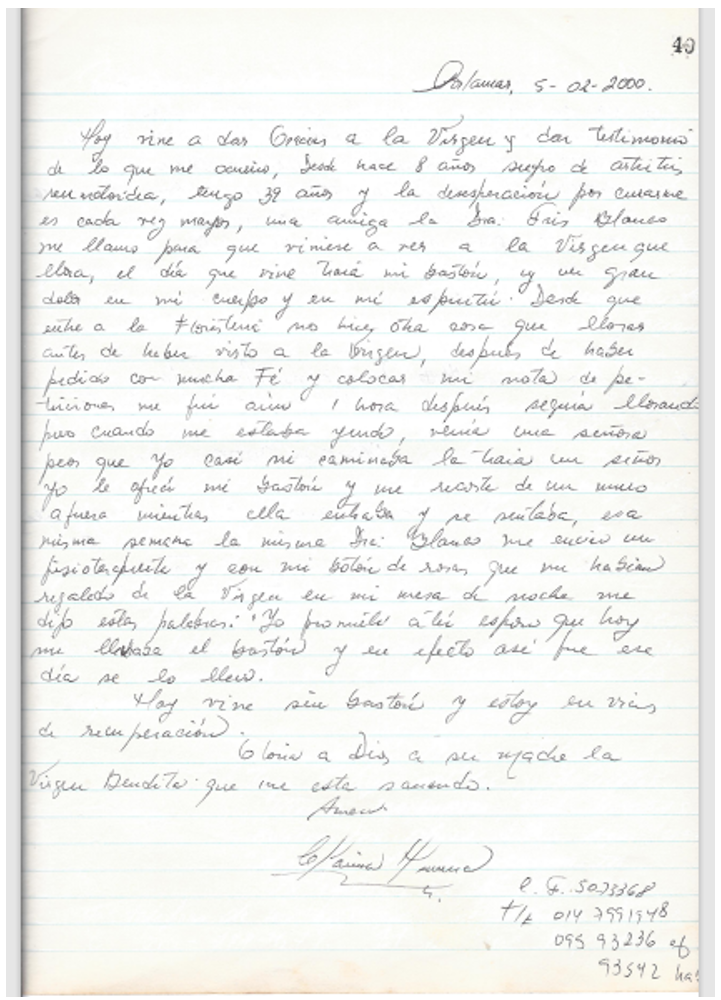 40
Porlamar, 5-02-2000.
Hoy vine a dar Gracias a la Virgen y dar testimonio
de lo que me ocurrio, Desde hace 8 años sufro de artritis
reumatoidea, tengo 39 años y la desesperación por curarme
es cada vez mayor, una amiga la Dra. Iris Blanco
me llamo para que viniese a ver a la Virgen que
llora, el día que vine traía mi bastón, y un gran
dolor en mi cuerpo y en mi espiritu. Desde que
entre a la Floristeria no hice otra cosa que llorar
antes de haber visto a la Virgen, después de haber
pedido con mucha Fé y colocar mi nota de pe-
ticiones me fui aún 1 hora después seguía llorando
pero cuando me estaba yendo, venía una señora
peor que yo casi ni caminaba la traia un señor
yo le ofrecí mi bastón y me recoste de un muro
afuera mientras ella entraba y se sentaba, esa
misma semana la misma Dra. Blanco me envio un
fisioterapeuta y con mi botón de rosas que me habian
regalado de la Virgen en mi mesa de noche me
dijo estas palabras: "Yo prometí a tú esposo que hoy
me llevaba el bastón y en efecto así fue ese
día se lo llevo.
Hoy vine sin bastón y estoy en vias
de recuperación.
Gloria a Dios a su Madre la
Virgen Bendita que me esta sanando.
Amen
C.I. 5073368
014 7991948
095 93236 of
93542 hab